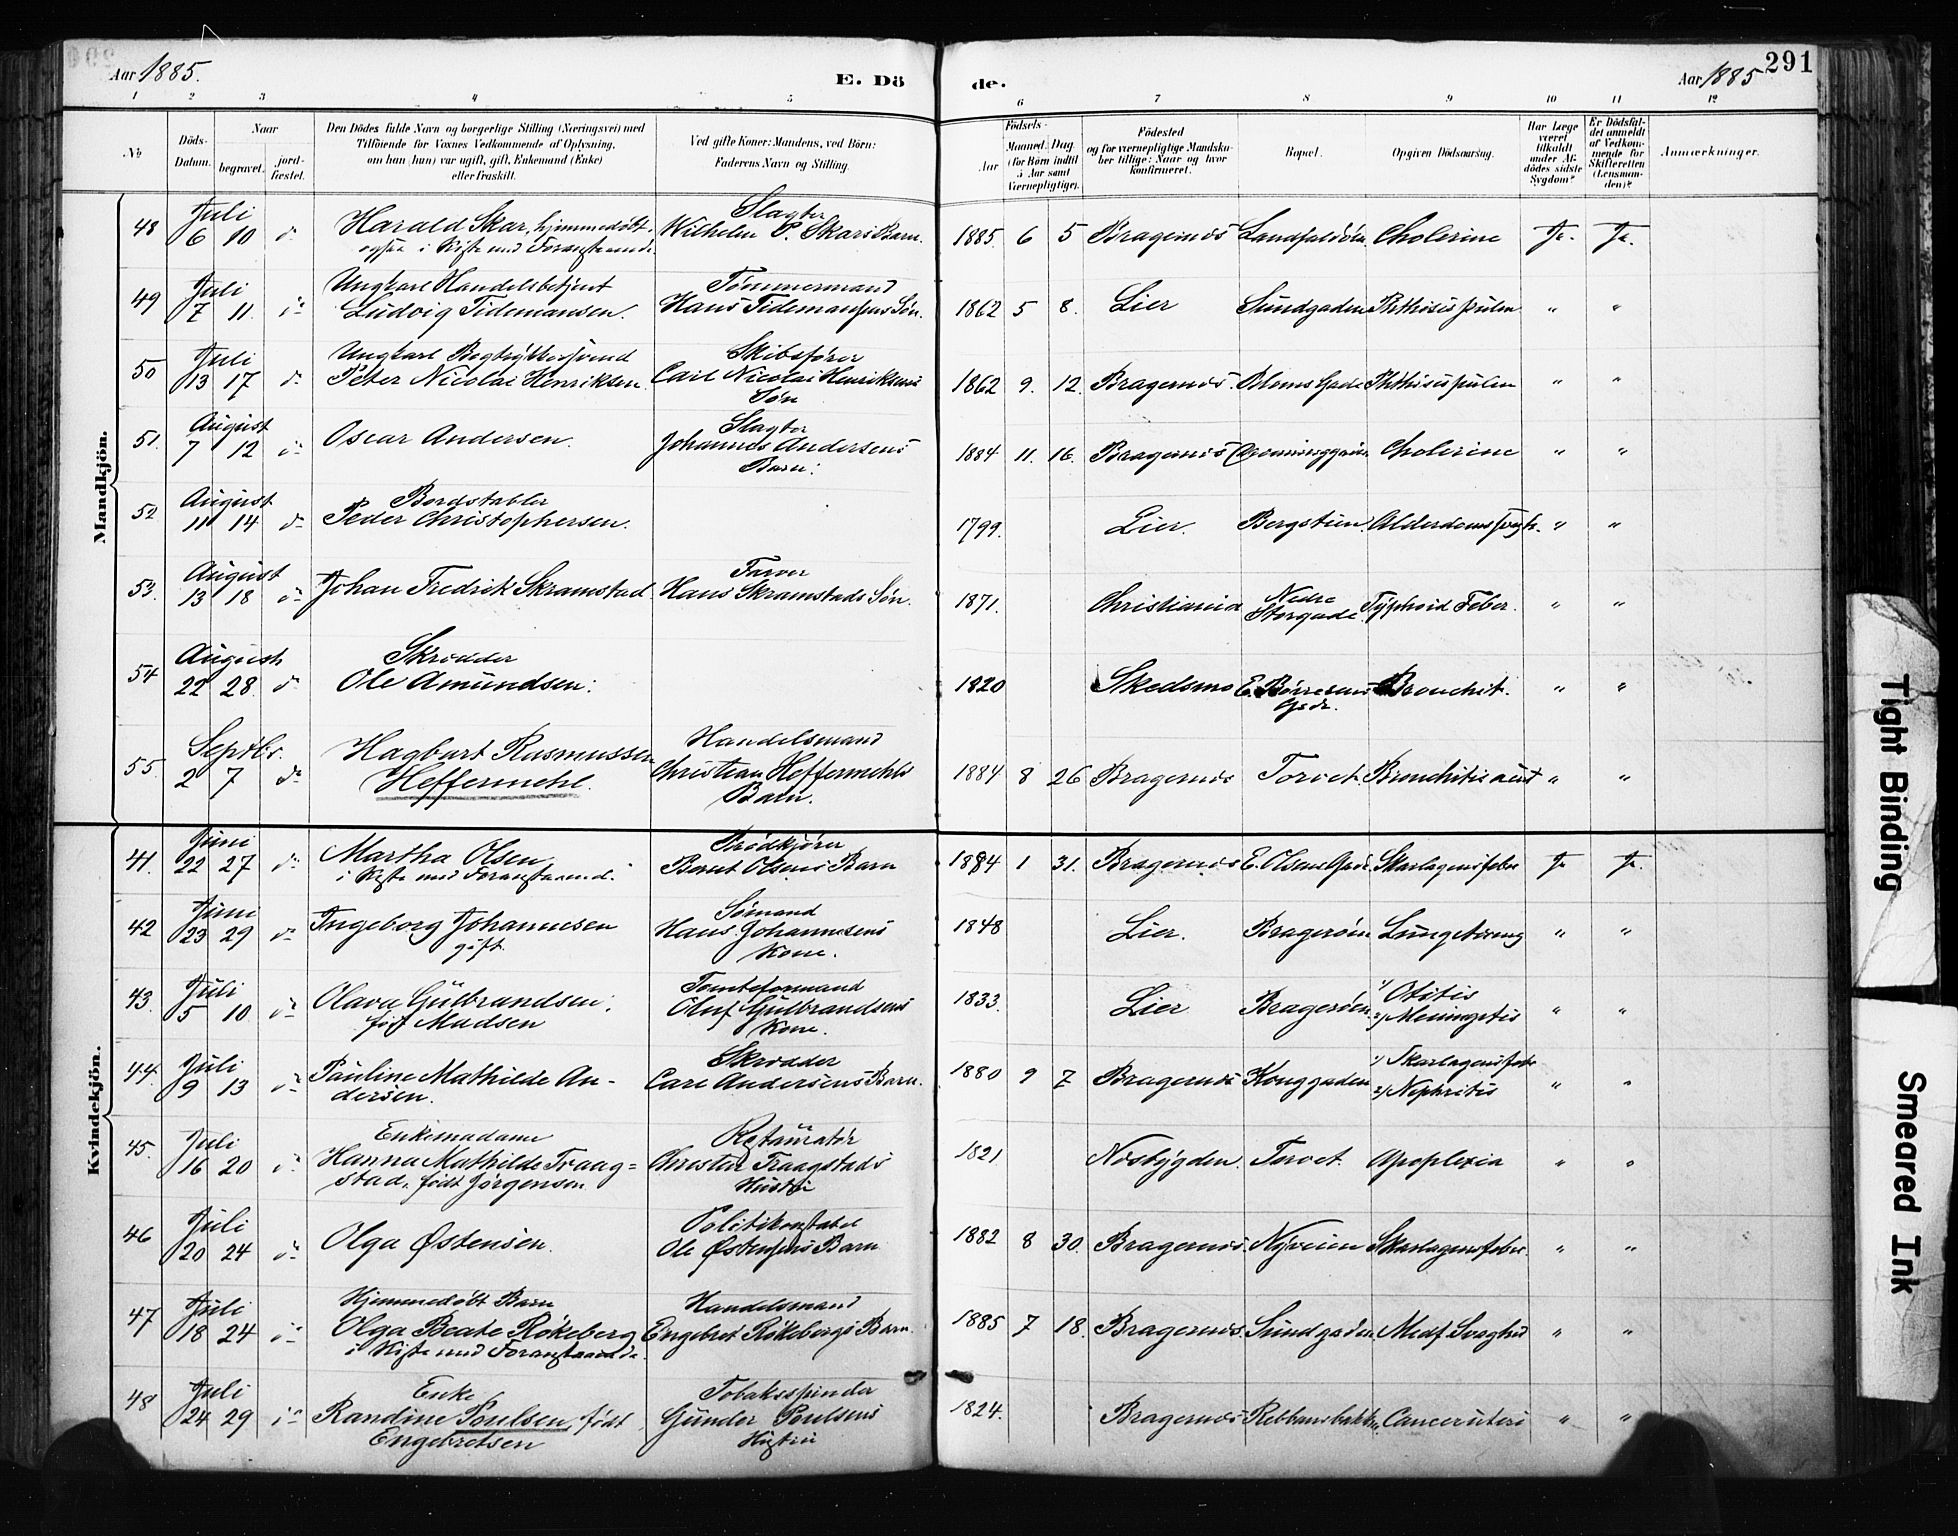 Aar 1885.
E. Dö
de.
Aar 1885
291
1 2 3 4 5 6 7 8 9 10 11 12
No
Döds-Datum.
Naar
begravet.
jord-fæstet.
Den Dödes fulde Navn og borgerlige Stilling (Næringsvei) med
Tilföiende for Voxnes Vedkommende af Oplysning,
om han (hun) var ugift, gift, Enkemand (Enke)
eller fraskilt.
Ved gifte Koner: Mandens, ved Börn:
Faderens Navn og Stilling.
Födsels-
Aar
Maaned. Dag
(for Börn indtil
5 Aar samt
Værnepligtige).
Födested
og for værnepligtige Mandskaber tillige: Naar og hvor
konfirmeret.
Bopæl.
Opgiven Dödsaarsag.
Har Læge
været
tilkaldt
under Afdödes sidste
Sygdom?
Er Dödsfaldet anmeldt
af Vedkommende for
Skifteretten
(Lensmanden)?
Anmærkninger.
Mandkjön.
48 Juli 6 10 do Harald Skar, hjemmedøbt, Slagter Wilhelm P. Skars Barn. 1885. 6 5 Bragernes Landfaldøen Cholerine Ja. Ja.
i Kiste med Foranstaaende.
49 Juli 7 11. do Ungkarl Handelsbetjent Ludvig Tidemansen. Tømmermand Hans Tidemansens Søn. 1862 5 8. Lier Sundgaden Phthisis pulm. " "
50 Juli 13 17 do Ungkarl Bogtrykkersvend Peter Nicolai Henriksen. Skibsfører Carl Nicolai Henriksens Søn 1862 9. 12. Bragernes Bloms Gade Phthisis pulm " "
51. August 7 12 do Oscar Andersen. Slagter Johannes Andersens Barn: 1884 11. 16. Bragernes Cholerine " "
52 August 11 14 do Bordstabler Peder Christophersen. 1799. Lier. Bergstien. Alderdomssvagh. " "
53. August 13 18 do Johan Fredrik Skramstad Farver Hans Skramstads Søn. 1871. Christiania Nedre Storgade. Typhoid Feber. " "
54 August 22 28. do Skrædder Ole Amundsen: 1820 Skedsmo E. Börresens Gade. Bronchit. " "
55. Septbr. 2 7 do Hagbart Rasmussen Heffermehl. Handelsmand Christian Heffermehls Barn. 1884 8 26 Bragernes Torvet. Bronchitis acut " "
Kvindekjön.
41. Juni 22 27 do Martha Olsen, Brødkjører Bernt Olsens Barn 1884 1 31. Bragernes E. Olsens Gade Skarlagensfeber Ja Ja.
i Kiste med Foranstaaend.
42 Juni 23 29 do Ingeborg Johannesen gift. Sømand Hans Johannesens Kone. 1848 Lier. Bragerøen Lungetæring " "
43. Juli 5 10. do Olava Gulbrandsen, født Madsen Tomteformand Oluf Gulbrandsens Kone. 1833. Lier Bragerøen 1) Otitis 2) Meningitis " "
44. Juli 9 13 do Pauline Mathilde Andersen. Skrædder Carl Andersens Barn. 1880 9 7 Bragernes Konggaden 1) Skarlagensfeber 2) Nephritis " "
45. Juli 16 20 do Enkemadame Hanna Mathilde Traagstad, født Jørgensen Restauratør Christen Traagstads Hustru 1821. Næsbygden. Torvet. Apoplexia " "
46 Juli 20 24 do Olga Østensen. Politikonstabel Ole Østensens Barn 1882 8 30. Bragernes. Nyveien Skarlagensfeber. " "
47 Juli 18 24 do Hjemmedøbt Barn Olga Beate Røkeberg Handelsmand Engebret Røkebergs Barn. 1885 7 18. Bragernes. Sundgaden Medf. Svaghed " "
i Kiste med Foranstaaende.
48 Juli 24 29 do Enke Randine Poulsen, født Engebretsen Tobaksspinder Gunder Poulsens Hustru 1824. Bragernes Rebbansbakken. Cancer uteri " "
Tight Binding
Smeared Ink